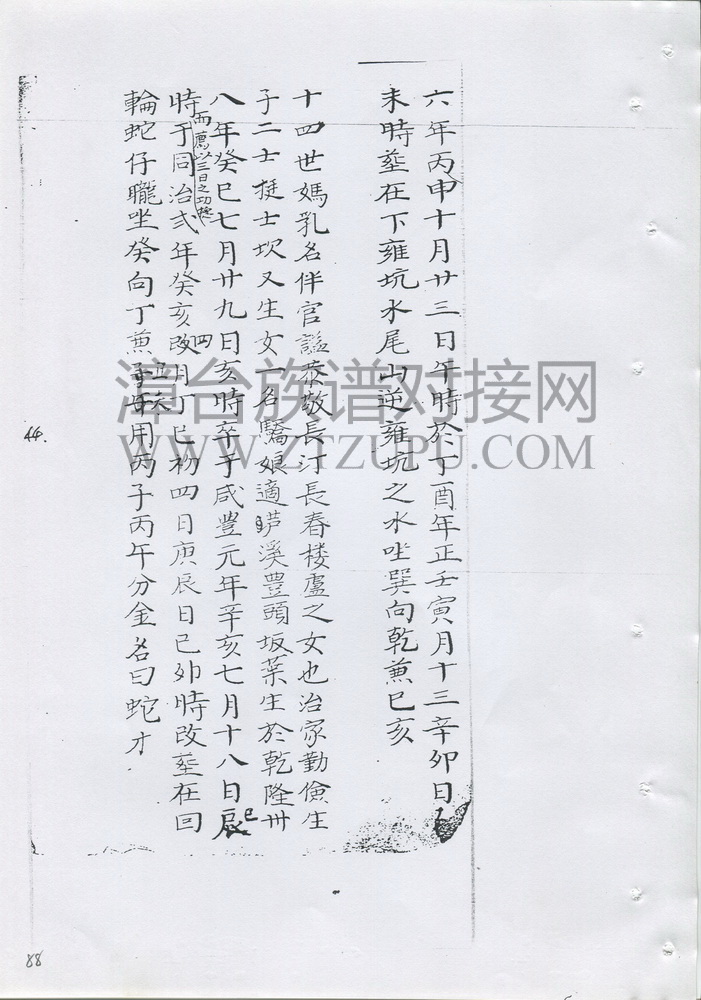 六年丙申十月廿三日午時於丁酉年正壬寅月十三辛卯日
未時塟在下雍坑水尾山逆雍坑之水坐巽向乾兼巳亥
十四世媽乳名伴官謚恭敬長汀長春楼盧之女也治家勤儉生
子二士挺士坎又生女一名驕娘適蘆溪豊頭坂葉生於乾隆卅
八年癸巳七月廿九日亥時卒于咸豐元年辛亥七月十八日辰巳
而薦三日之功德
時于同治弍年癸亥改四月丁巳初四日庚辰日己卯時改塟在回
輪蛇仔朧坐癸向丁兼丑未用丙子丙午分金名曰蛇才
44.
88
漳台族谱对接网
WWW.ZTZUPU.COM